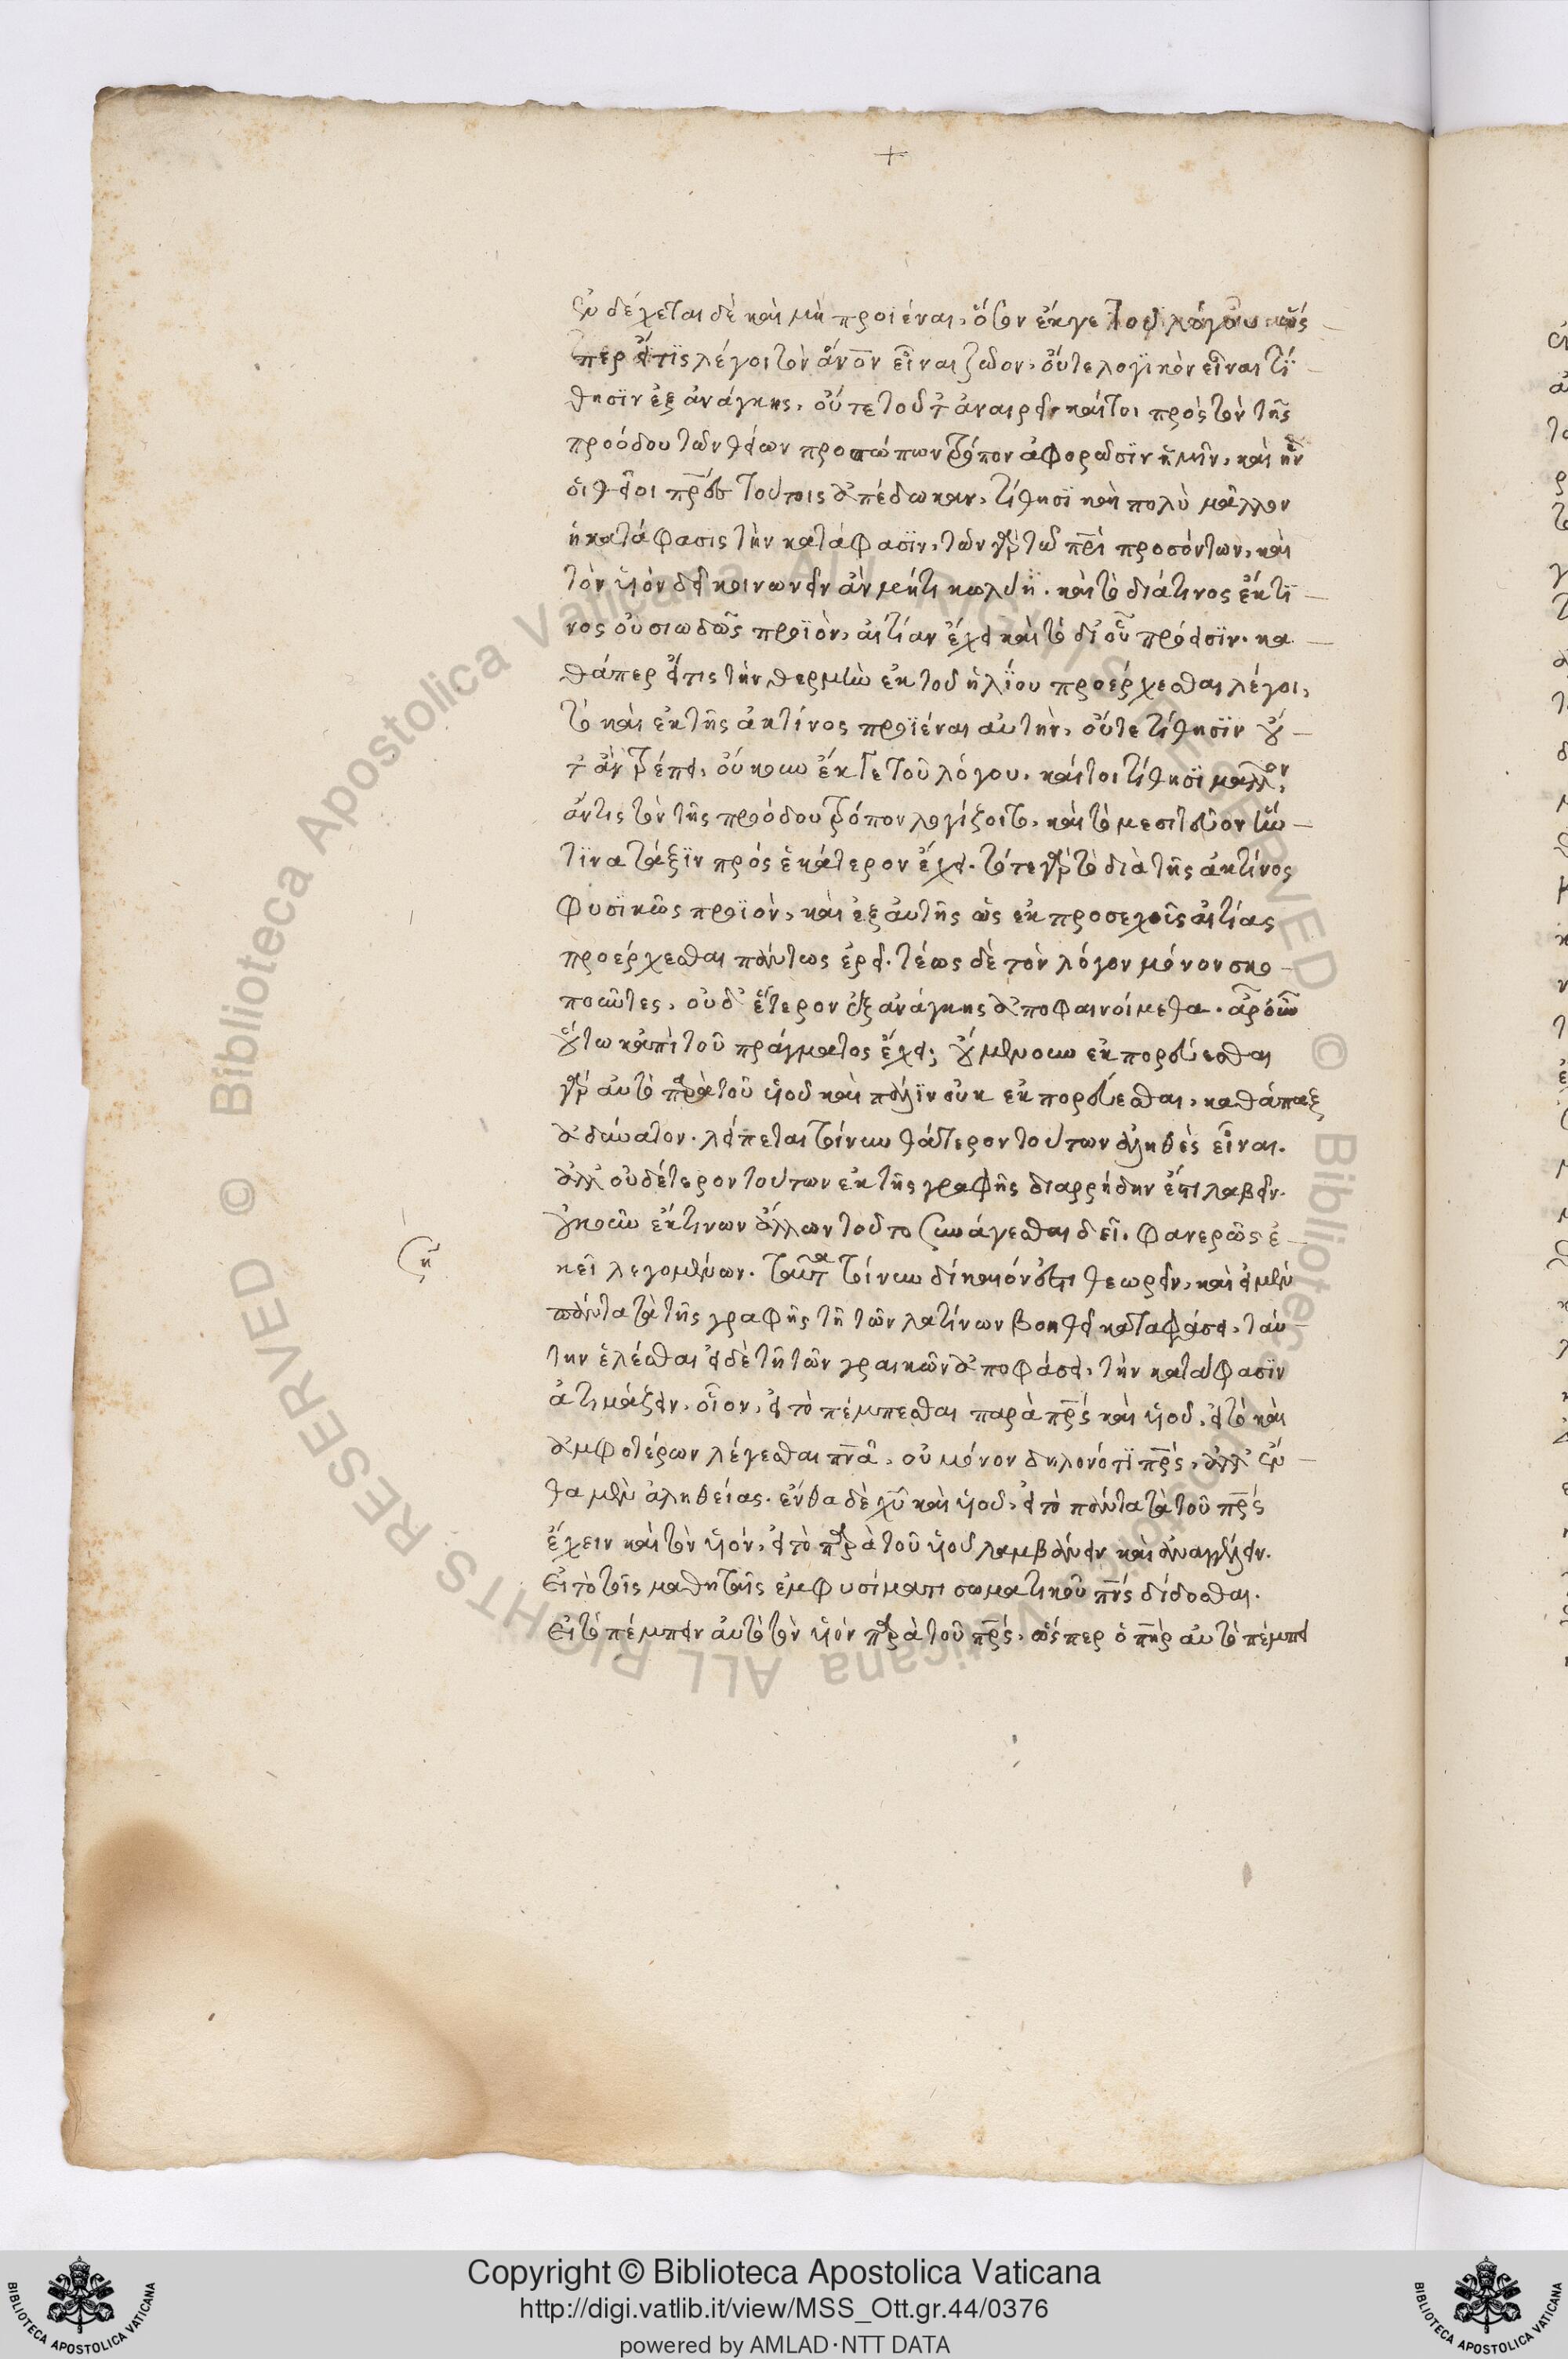 +
ἐνδέχεται δὲ καὶ μὴ προϊέναι, ὅσον ἔκγε τοῦ λόγου ὥς
περ εἴ τις λέγοι τὸν ἄνον εἶναι ζῶον, οὔτε λογικὸν εἶναι τί
θησιν ἐξ ἀνάγκης, οὔτε τοῦτ ἀναιρεῖ καίτοι πρὸς τὸν τῆς
προόδου τῶν θείων προσώπων τρόπον ἀφορῶσιν ἡμῖν, καὶ ἣν
οἱ θεῖοι πρες τούτοις ἀπέδωκαν, τίθησι καὶ πολὺ μᾶλλον
ἡ κατάφασις τὴν κατάφασιν, τῶν γὰρ τῶ πρι προσόντων, καὶ
τὸν υἱὸν δεῖ κοινωνεῖν ἂν μήτι κωλύη. καὶ τὸ διά τινος ἔκ τι
νος οὐσιωδῶς προϊὸν, αἰτίαν ἔχει καὶ τὸ δι οὗ πρόεισιν. κα
θάπερ εἴ τις τὴν θερμὴν ἐκ τοῦ ἡλίου προέρχεσθαι λέγοι,
τὸ καὶ ἐκ τῆς ἀκτίνος προϊέναι αὐτὴν, οὔτε τίθησιν οὔ
τ ἀνατρέπει, οὔκουν ἔκ γε τοῦ λόγου. καίτοι τίθησι μᾶλλον,
ἄν τις τὸν τῆς προόδου τρόπον λογίζοιτο, καὶ τὸ μεσιτεῦον ἥν
τινα τάξιν πρὸς ἑκάτερον ἔχει. τό τε γὰρ τὸ διὰ τῆς ἀκτίνος
φυσικῶς προϊὸν, καὶ ἐξ αὐτῆς ὡς ἐκ προσεχοῦς αἰτίας
προέρχεσθαι πάντως ἐρεῖ. τέως δὲ τὸν λόγον μόνον σκο
ποῦντες, οὐδ ἕτερον ἐξ ἀνάγκης ἀποφαινοίμεθα. ἆρ οὖν
οὕτω κἀπὶ τοῦ πράγματος ἔχει; οὔμενουν ἐκπορεύεσθαι
γὰρ αὐτὸ παρὰ τοῦ υἱοῦ καὶ πάλιν οὐκ ἐκπορεύεσθαι, καθάπαξ
ἀδύνατον. λείπεται τοίνυν θάτερον τούτων ἀληθὲς εἶναι.
ἀλλ οὐδέτερον τούτων ἐκ τῆς γραφῆς διαρρήδην ἔστι λαβεῖν.
οὐκοῦν ἔκ τινων ἄλλων τοῦτο συνάγεσθαι δεῖ. φανερῶς ἐ
κεῖ λεγομένων. ταῦτα τοίνυν δίκαιόν ἐστι θεωρεῖν, καὶ εἰ μὲν
πάντα τὰ τῆς γραφῆς τῆ τῶν λατίνων βοηθεῖ καταφάσει, ταύ
την ἑλέσθαι εἰ δὲ τῆ τῶν γραικῶν ἀποφάσει, τὴν κατάφασιν
ἀτιμάζειν. οἷον, εἰ τὸ πέμπεσθαι παρὰ πρς καὶ υἱοῦ, εἰ τὸ καὶ
ἀμφοτέρων λέγεσθαι πνα, οὐ μόνον δηλονότι πρς, ἀλλ ἐν
θα μὲν ἀληθείας. ἔνθα δὲ χυ καὶ υἱοῦ, εἰ τὸ πάντα τὰ τοῦ πρς
ἔχειν καὶ τὸν υἱόν, εἰ τὸ παρὰ τοῦ υἱοῦ λαμβάνειν καὶ ἀναγγέλλειν.
εἰ τὸ τοῖς μαθηταῖς ἐμφυσήματι σωματικοῦ πνς δίδοσθαι.
εἰ τὸ πέμπειν αὐτὸ τὸν υἱὸν παρὰ τοῦ πρς, ὥσπερ ὁ πηρ αὐτὸ πέμπει
Copyright © Biblioteca Apostolica Vaticana
http://digi.vatlib.it/view/MSS_Ott.gr.44/0376
powered by AMLAD·NTT DATA
BIBLIOTECA APOSTOLICA VATICANA
BIBLIOTECA APOSTOLICA VATICANA
© Biblioteca Apostolica Vaticana ALL RIGHTS RESERVED © Biblioteca Apostolica Vaticana ALL RIGHTS RESERVED